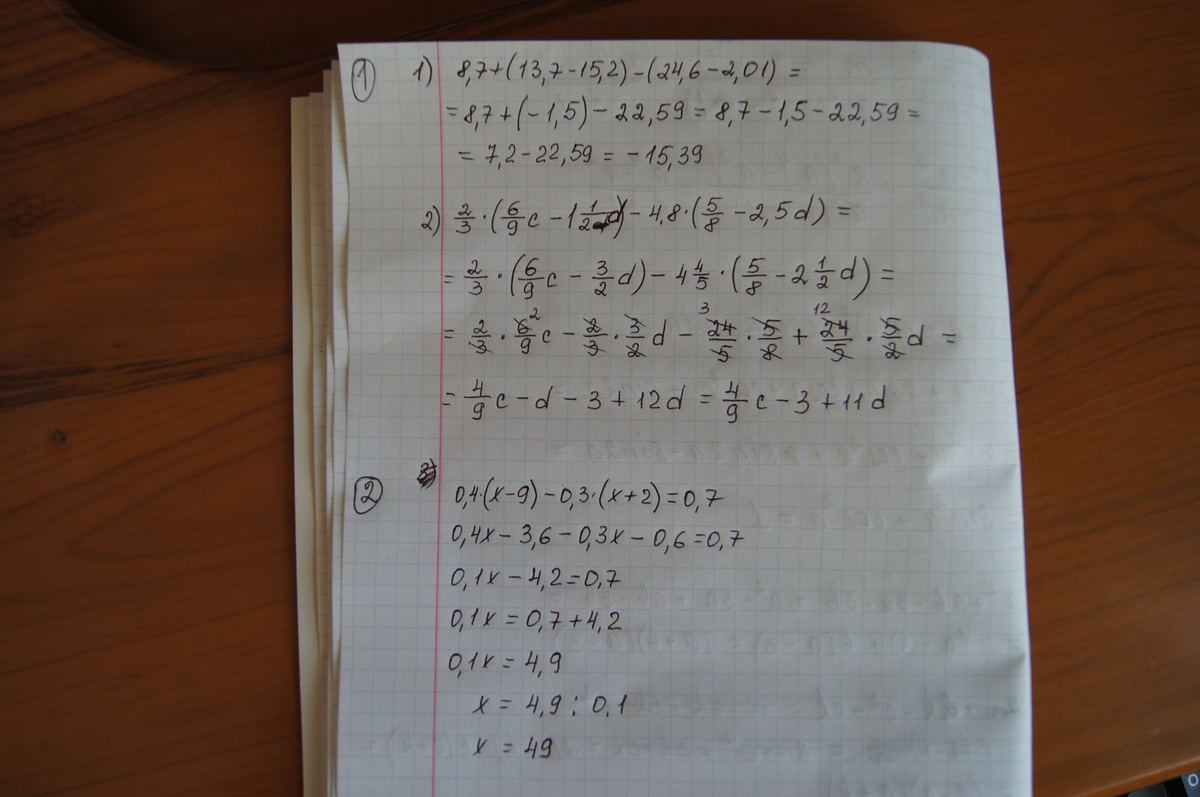 ① 1) 8,7+(13,7-15,2)-(24,6-2,01) =
= 8,7+(-1,5)-22,59 = 8,7-1,5-22,59 =
= 7,2-22,59 = -15,39
2) 2/3·(6/9c - 1 1/2d) - 4,8·(5/8 - 2,5d) =
= 2/3·(6/9c - 3/2d) - 4 4/5·(5/8 - 2 1/2d) =
= 2/3·6/9 2c - 2/3·3/2d - 3 24/5·5/8 + 12 24/5·5/2d =
= 4/9c - d - 3 + 12d = 4/9c - 3 + 11d
② 0,4·(x-9)-0,3·(x+2)=0,7
0,4x-3,6-0,3x-0,6=0,7
0,1x-4,2=0,7
0,1x=0,7+4,2
0,1x=4,9
x = 4,9 : 0,1
x = 49